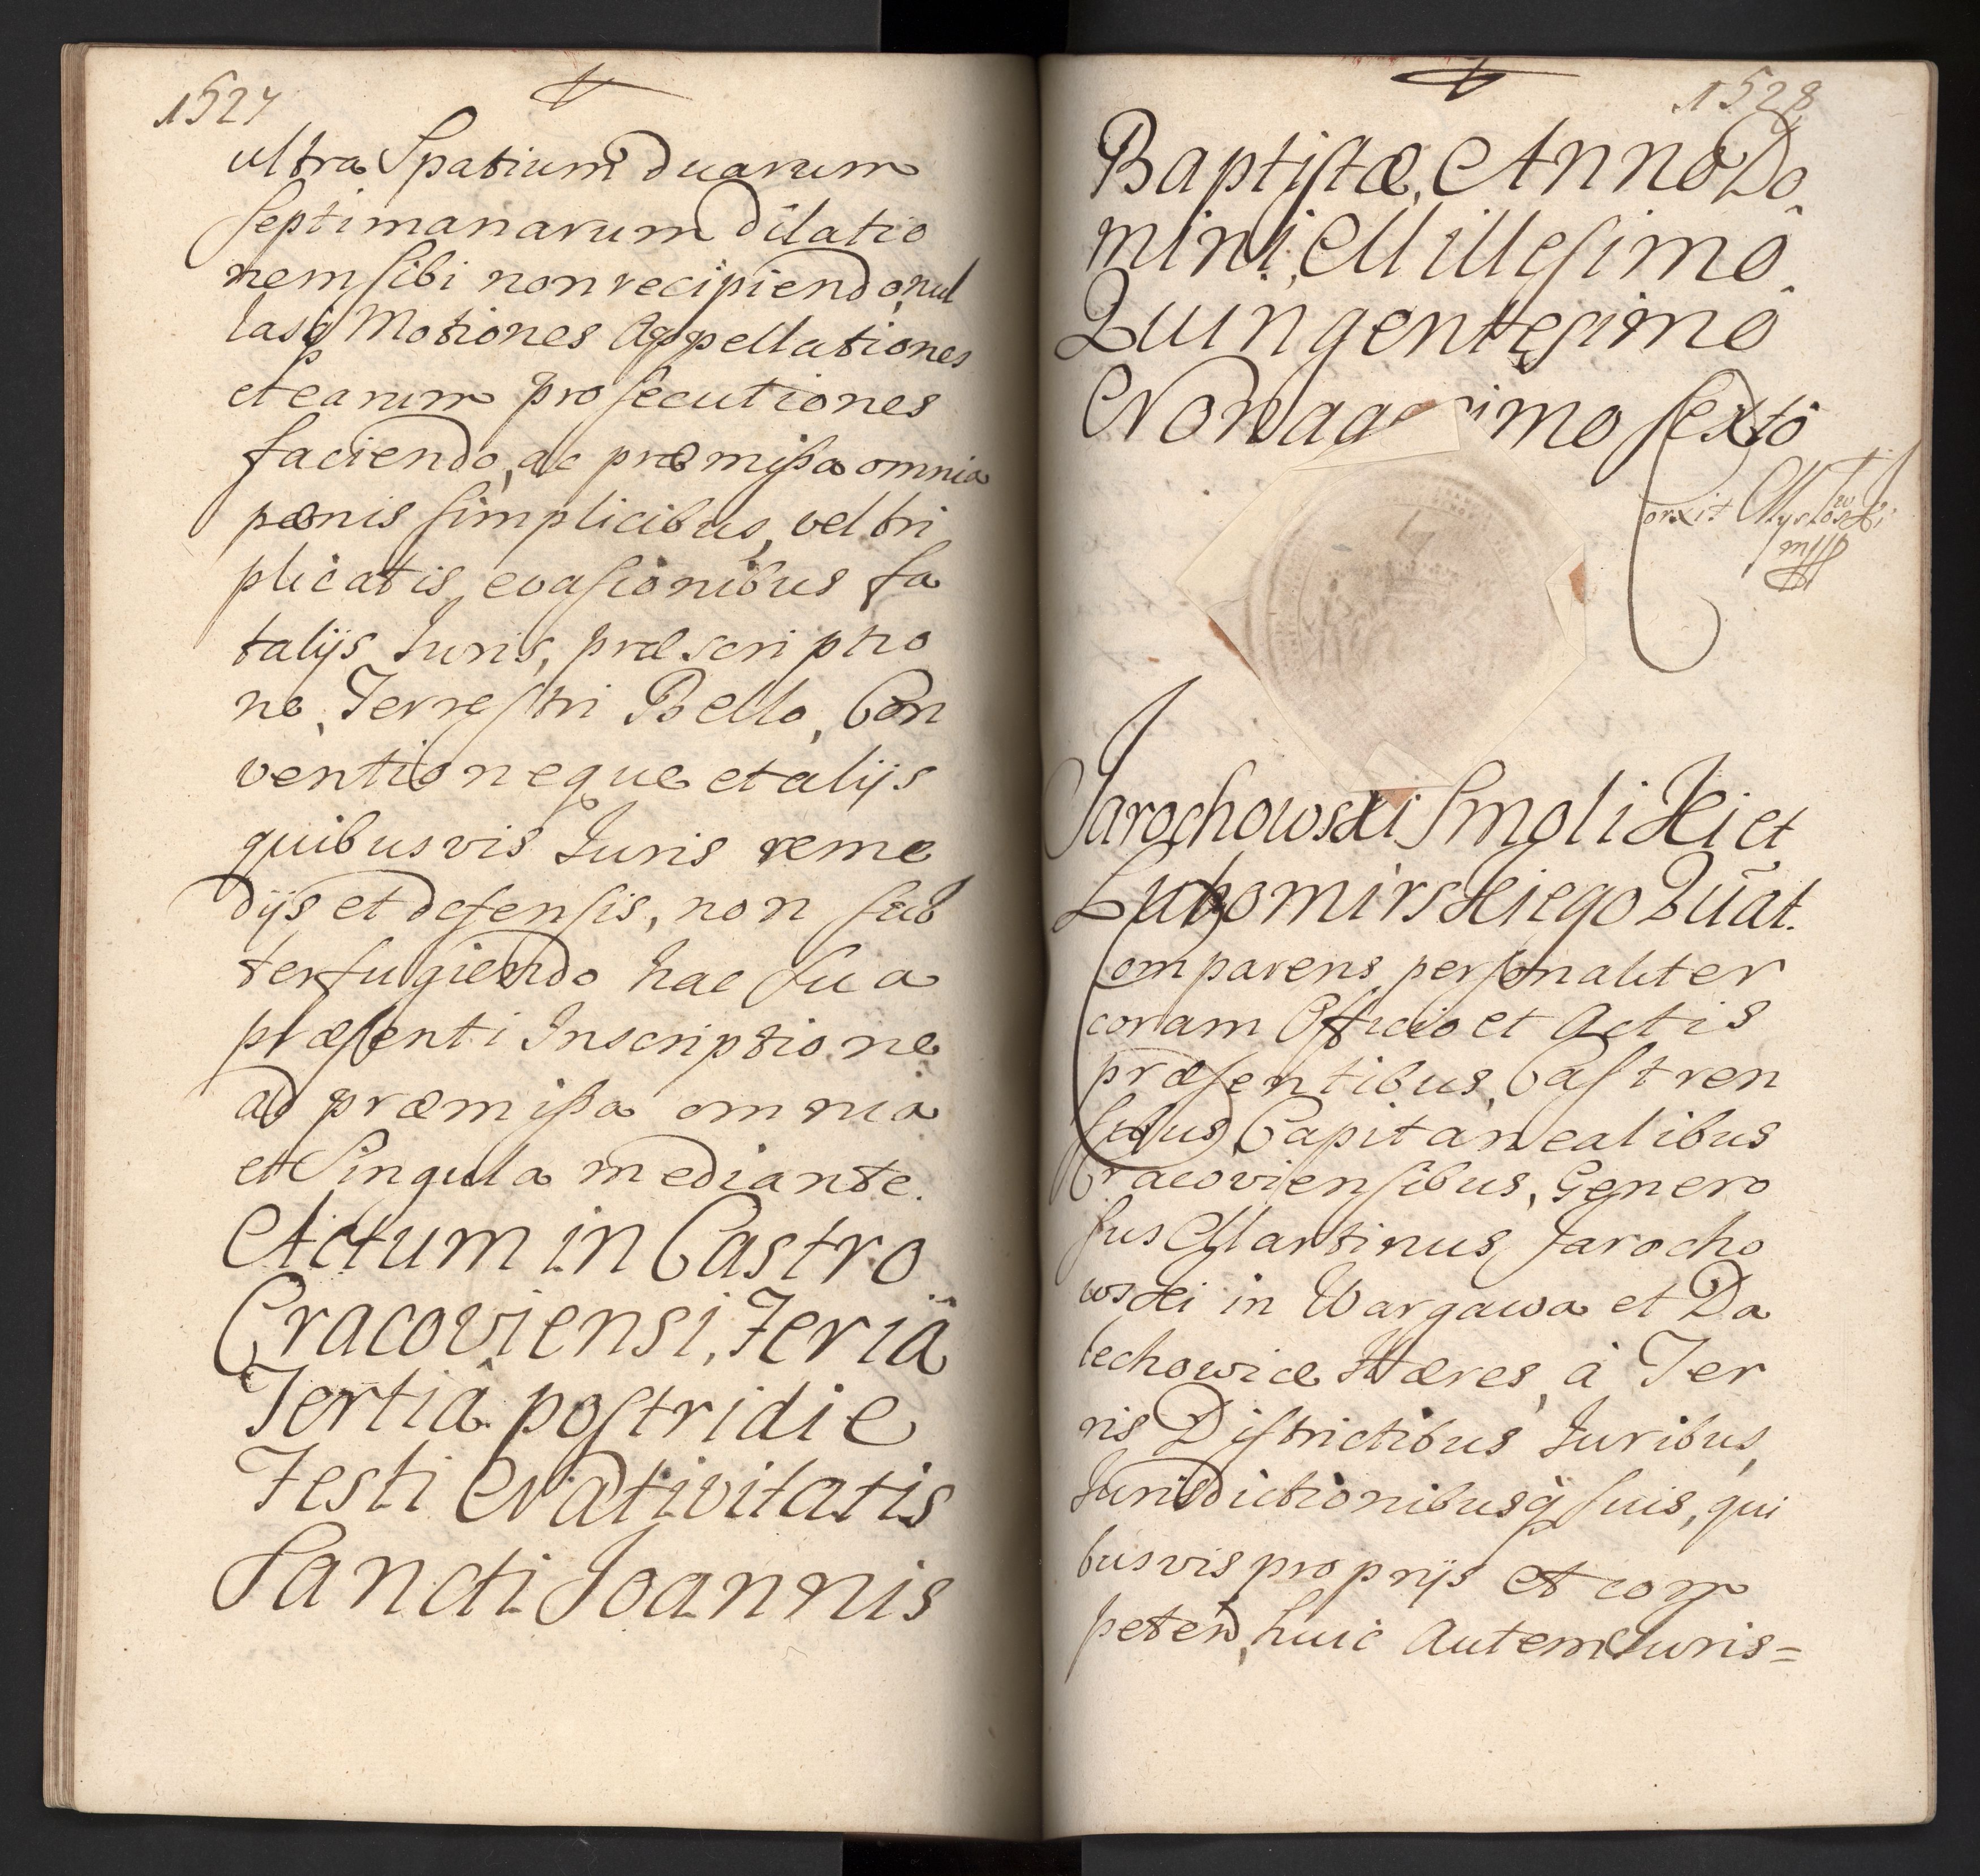 1527
ultra Spatium duarum
septimanarum dilatio
nem sibi non recipiendo, nul
lasq Motiones Appellationes
et earum prosecutiones
faciendo, ac præmißa omnia
pænis simplicibus, vel tri
plicatis evasionibus fa
talijs Iuris, præscriptio
ne, Terrestri Bello, Con
ventioneque et alijs
quibusvis Iuris reme
dijs et defensis, non sub
terfugiendo hac sua
præsenti Inscriptione
ad præmißa omnia
et Singula mediante.
Actum in Castro
Cracoviensi, Feriâ
Tertiâ postridie
Festi Nativitatis
Sancti Joannis
1528
Baptistæ, Anno Do
mini, Millesimô
Quingentesimô
Nonagesimo sextô
Jarochowski Smoliki et
Lubomirskiego Quat.
Comparens personaliter
coram Officio et Actis
præsentibus, Castren
sibus Capitanealibus
Cracoviensibus, Genero
sus Martinus Jarocho
wski in Wargawa et Da
lechowice Hæres, à Ter
ris Districtibus Iuribus,
Iurisdictionibusq suis, qui
busvis proprijs et com
peten, huic Autem Iuris=